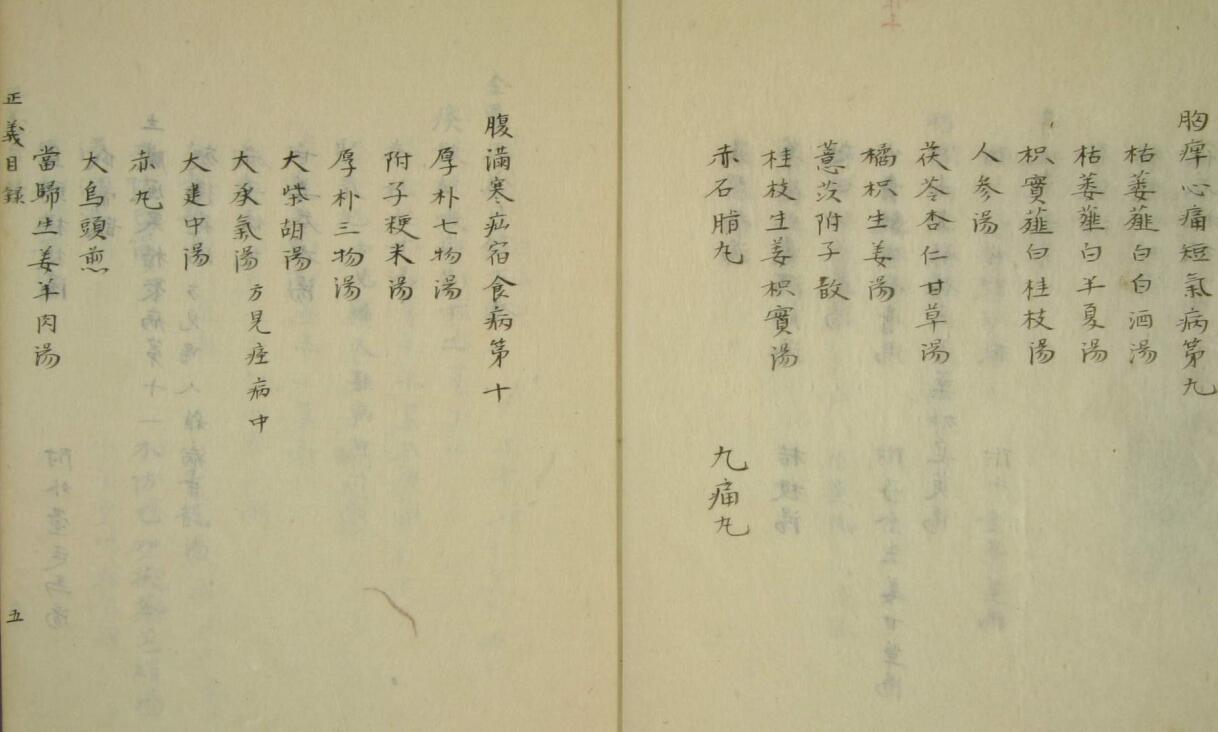 胸痺心痛短氣病第九
枯蔞薤白白酒湯
枯蔞薤白半夏湯
枳實薤白桂枝湯
人參湯
茯苓杏仁甘草湯
橘枳生姜湯
薏苡附子散
桂枝生姜枳實湯
赤石脂丸 九痛丸
腹滿寒疝宿食病第十
厚朴七物湯
附子粳米湯
厚朴三物湯
大柴胡湯
大承氣湯 方見痓病中
大建中湯
赤丸
大烏頭煎
當歸生姜羊肉湯
正義目錄 五